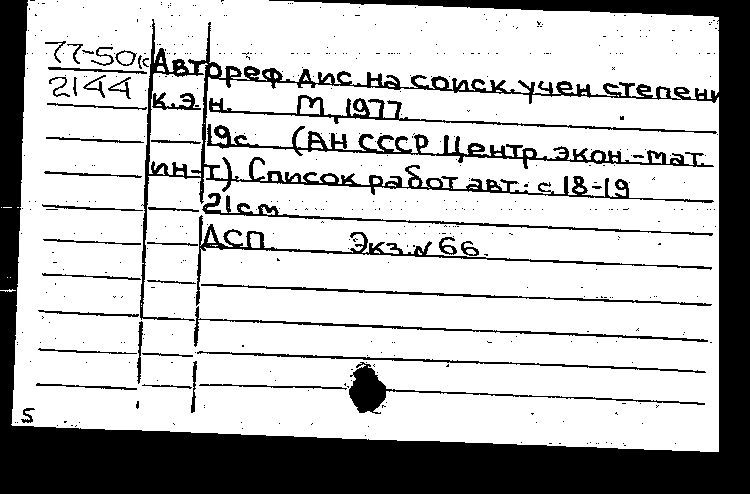 77-50к Автореф. дис. на соиск. учен степени
2144 к.э.н. М, 1977.
19с. (АН СССР Центр. экон.-мат.
ин-т). Список работ авт.: с. 18-19
21см.
ДСП. Экз. № 66.
5